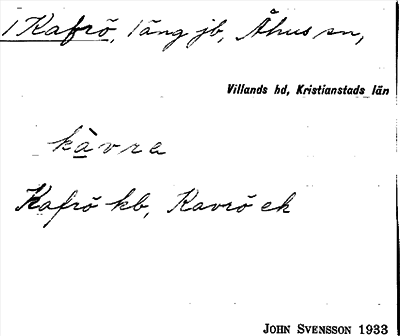 1 Kafrö, äng jb, Åhus sn,
Villands hd, Kristianstads län
kàvrə
Kafrö kb, Kavrö ek
JOHN SVENSSON 1933